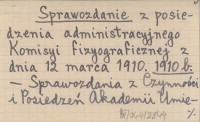 Sprawozdanie z posie-
dzenia administracyjnego
Komisyi fizyograficznej z
dnia 12 marca 1910. 1910 b.
— Sprawozdania z Czynności
i Posiedzeń Akademii Umie-
%.